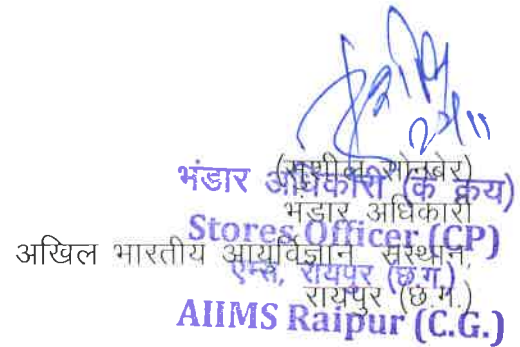 भंडार अधिकारी (के क्रय)
(सुशील सोनबेर)
भंडार अधिकारी
Stores Officer (CP)
अखिल भारतीय आयुर्विज्ञान संस्थान,
एम्स, रायपुर (छ.ग.)
रायपुर (छ.ग.)
AIIMS Raipur (C.G.)